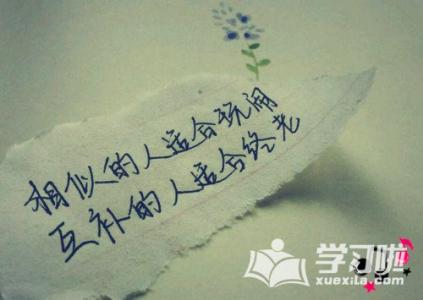 相似的人适合玩闹
互补的人适合终老
学习啦
xuexila.com